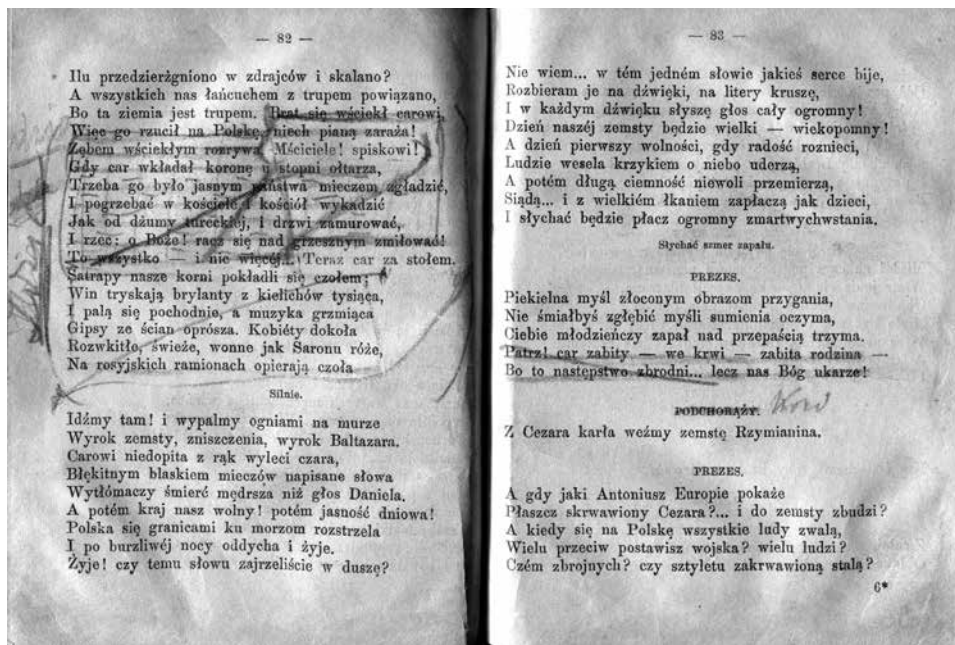 — 82 —
Ilu przedzierżgniono w zdrajców i skalano?
A wszystkich nas łańcuchem z trupem powiązano,
Bo ta ziemia jest trupem. Brat się wściekł carowi,
Więc go rzucił na Polskę, niech pianą zaraża!
Zębem wściekłym rozrywa. Mściciele! spiskowi!
Gdy car wkładał koronę u stopni ołtarza,
Trzeba go było jasnym państwa mieczem zgładzić,
I pogrzebać w kościele, i kościół wykadzić
Jak od dżumy tureckiéj, i drzwi zamurować,
I rzec: o Boże! racz się nad grzesznym zmiłować!
To wszystko — i nic więcéj... Teraz car za stołem.
Satrapy nasze korni pokładli się czołem;
Win tryskają brylanty z kielichów tysiąca,
I palą się pochodnie, a muzyka grzmiąca
Gipsy ze ścian oprósza. Kobiéty dokoła
Rozwkitłe, świeże, wonne jak Saronu róże,
Na rosyjskich ramionach opierają czoła
Silnie.
Idźmy tam! i wypalmy ogniami na murze
Wyrok zemsty, zniszczenia, wyrok Baltazara.
Carowi niedopita z rąk wyleci czara,
Błękitnym blaskiem mieczów napisane słowa
Wytłómaczy śmierć mędrsza niż głos Daniela.
A potém kraj nasz wolny! potém jasność dniowa!
Polska się granicami ku morzom rozstrzela
I po burzliwéj nocy oddycha i żyje.
Żyje! czy temu słowu zajrzeliście w duszę?
— 83 —
Nie wiem... w tém jedném słowie jakieś serce bije,
Rozbieram je na dźwięki, na litery kruszę,
I w każdym dźwięku słyszę głos cały ogromny!
Dzień naszéj zemsty będzie wielki — wiekopomny!
A dzień pierwszy wolności, gdy radość roznieci,
Ludzie wesela krzykiem o niebo uderzą,
A potém długą ciemność niewoli przemierzą,
Siądą... i z wielkiém łkaniem zapłaczą jak dzieci,
I słychać będzie płacz ogromny zmartwychwstania.
Słychać szmer zapału.
PREZES.
Piekielna myśl złoconym obrazom przygania,
Nie śmiałbyś zgłębić myśli sumienia oczyma,
Ciebie młodzieńczy zapał nad przepaścią trzyma.
Patrz! car zabity — we krwi — zabita rodzina —
Bo to następstwo zbrodni... lecz nas Bóg ukarze!
PODCHORĄŻY.
Z Cezara karła weźmy zemstę Rzymianina.
PREZES.
A gdy jaki Antoniusz Europie pokaże
Płaszcz skrwawiony Cezara?... i do zemsty zbudzi?
A kiedy się na Polskę wszystkie ludy zwalą,
Wielu przeciw postawisz wojska? wielu ludzi?
Czém zbrojnych? czy sztyletu zakrwawioną stalą?
6*